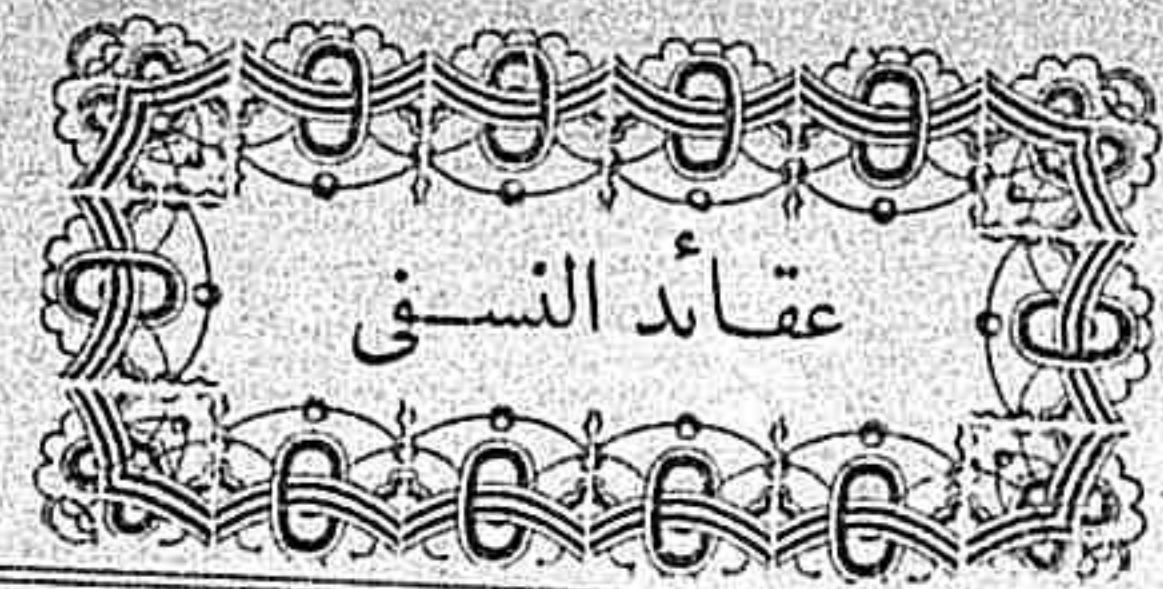 عقائد النسفى